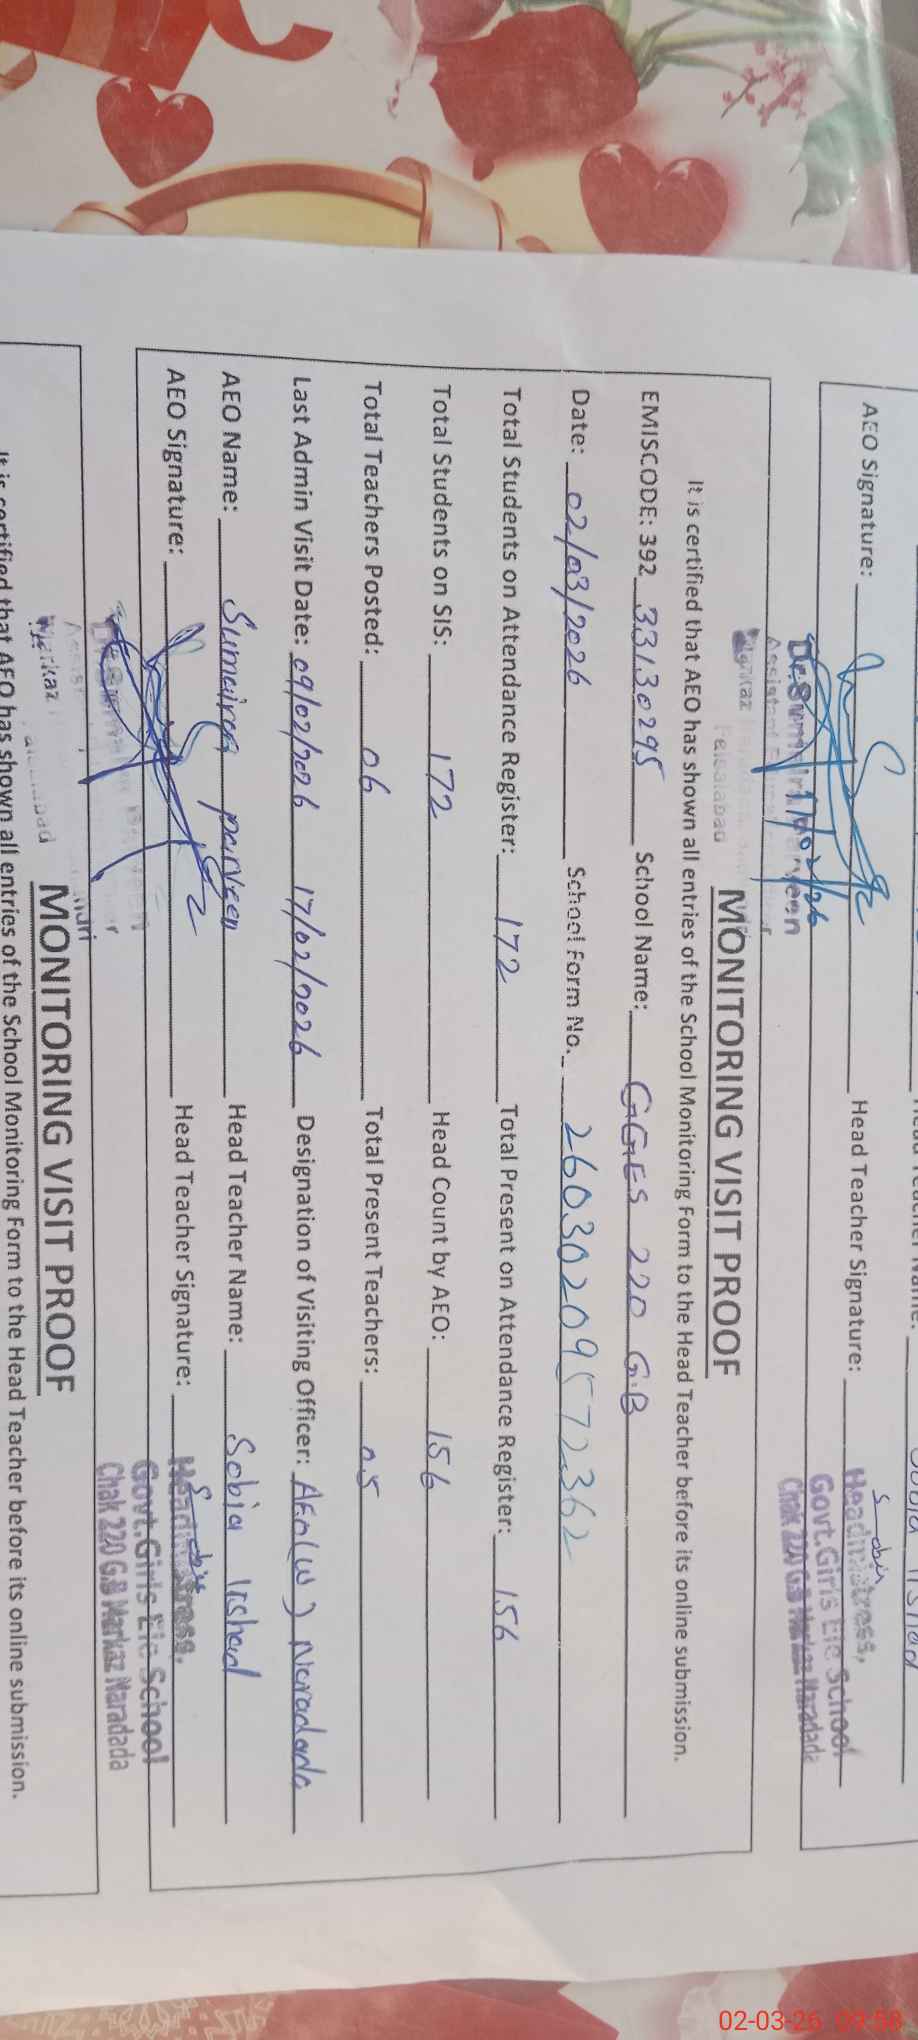 AEO Signature: Head Teacher Signature:
Headmistress,
Govt.Girls Ele School
Chak 220 G.B Markaz Naradada
17/02/26
MONITORING VISIT PROOF
It is certified that AEO has shown all entries of the School Monitoring Form to the Head Teacher before its online submission.
EMISCODE: 392 33130295 School Name: GGES 220 G.B
Date: 02/03/2026 School Form No. 26030209572362
Total Students on Attendance Register: 172 Total Present on Attendance Register: 156
Total Students on SIS: 172 Head Count by AEO: 156
Total Teachers Posted: 06 Total Present Teachers: 05
Last Admin Visit Date: 09/02/2026 17/02/2026 Designation of Visiting Officer: AEO(W) Naradada
AEO Name: Sumaira parveen Head Teacher Name: Sobia Irshad
AEO Signature: Head Teacher Signature:
Headmistress,
Govt.Girls Ele School
Chak 220 G.B Markaz Naradada
MONITORING VISIT PROOF
It is certified that AEO has shown all entries of the School Monitoring Form to the Head Teacher before its online submission.
02-03-26 09:58